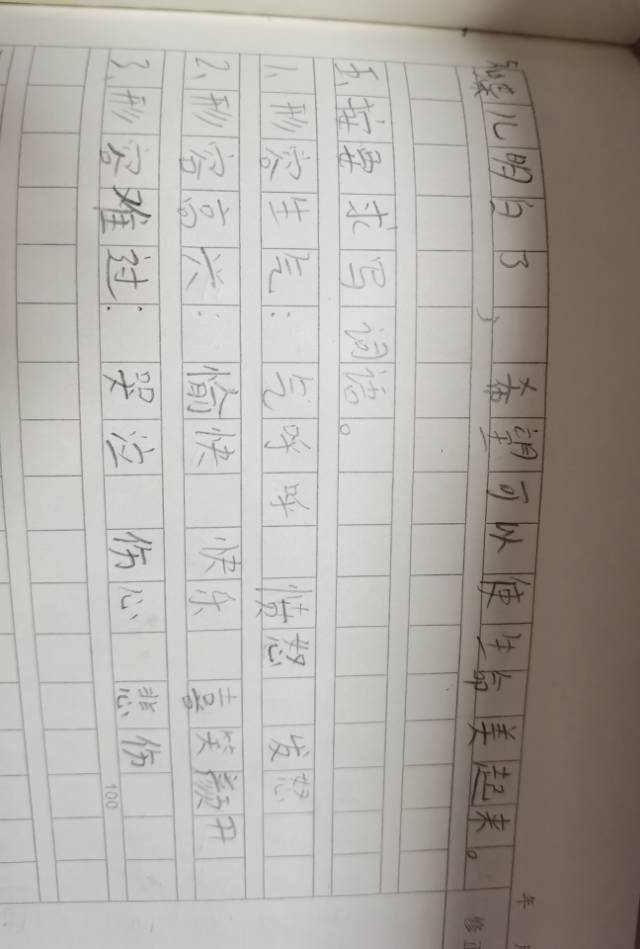 年
儿明白了，希望可以使生命美起来。
五、按要求写词语。
1、形容生气：气呼呼 愤怒 发怒
2、形容高兴：愉快 快乐 喜笑颜开
3、形容难过：哭泣 伤心 悲伤
100